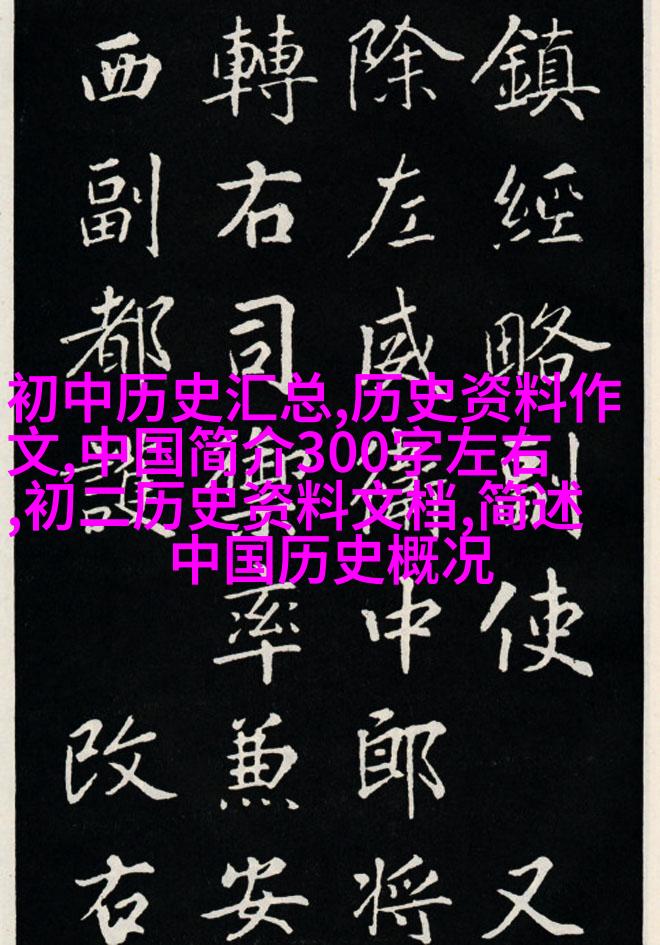 鎮經略副使又
除左威衛中郎將
轉右司禦率兼安
西副都護改右
初中历史汇总,历史资料作
文,中国简介300字左右
,初二历史资料文档,简述
中国历史概况